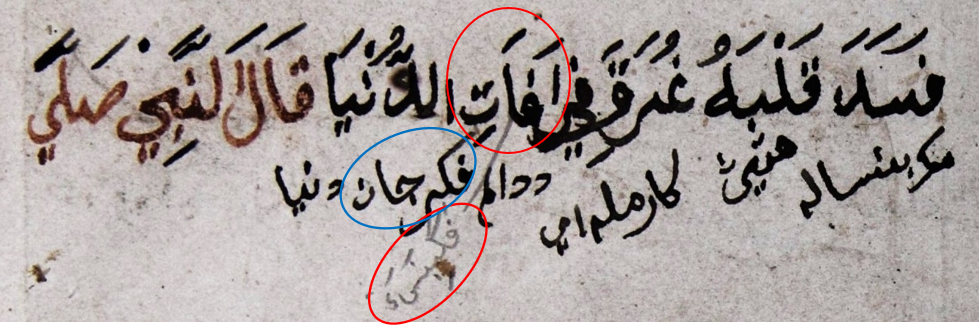 فَسَدَ قَلْبُهُ غَرَقَ فِي اَفَاتِ الدُّنْيَا قَالَ لنَّبِيِّ صَلَي
مک بنساله هتيڽ کارملم امي ددالم فکرجان دنيا